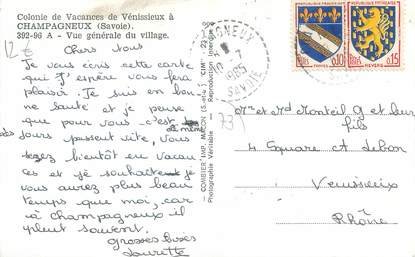 Colonie de Vacances de Vénissieux à
CHAMPAGNEUX (Savoie).
392-96 A - Vue générale du village.
12€
Chers tous
Je vous écris cette carte
qui j'espère vous fera
plaisir. Je suis en bon-
ne santé et je pense
que pour vous c'est
de même
jours passent vite, Vous
bientôt en vacan
ces et je souhaite
vous aurez plus beau
temps que moi, car
à champagneux il
pleut souvent.
grosses bises
COMBIER IMP. MACON (S.-et-L.) "CIM"
Reproduction interdite
Véritable
AGNEUX
10-7
1965
SAVOIE
REPUBLIQUE FRANÇAISE
0,10
TROYES
REPUBLIQUE FRANÇAISE
0,15
NEVERS
73
Mr et Md Monteil G et leur
fils
4 Square A
Venissieux
Rhône